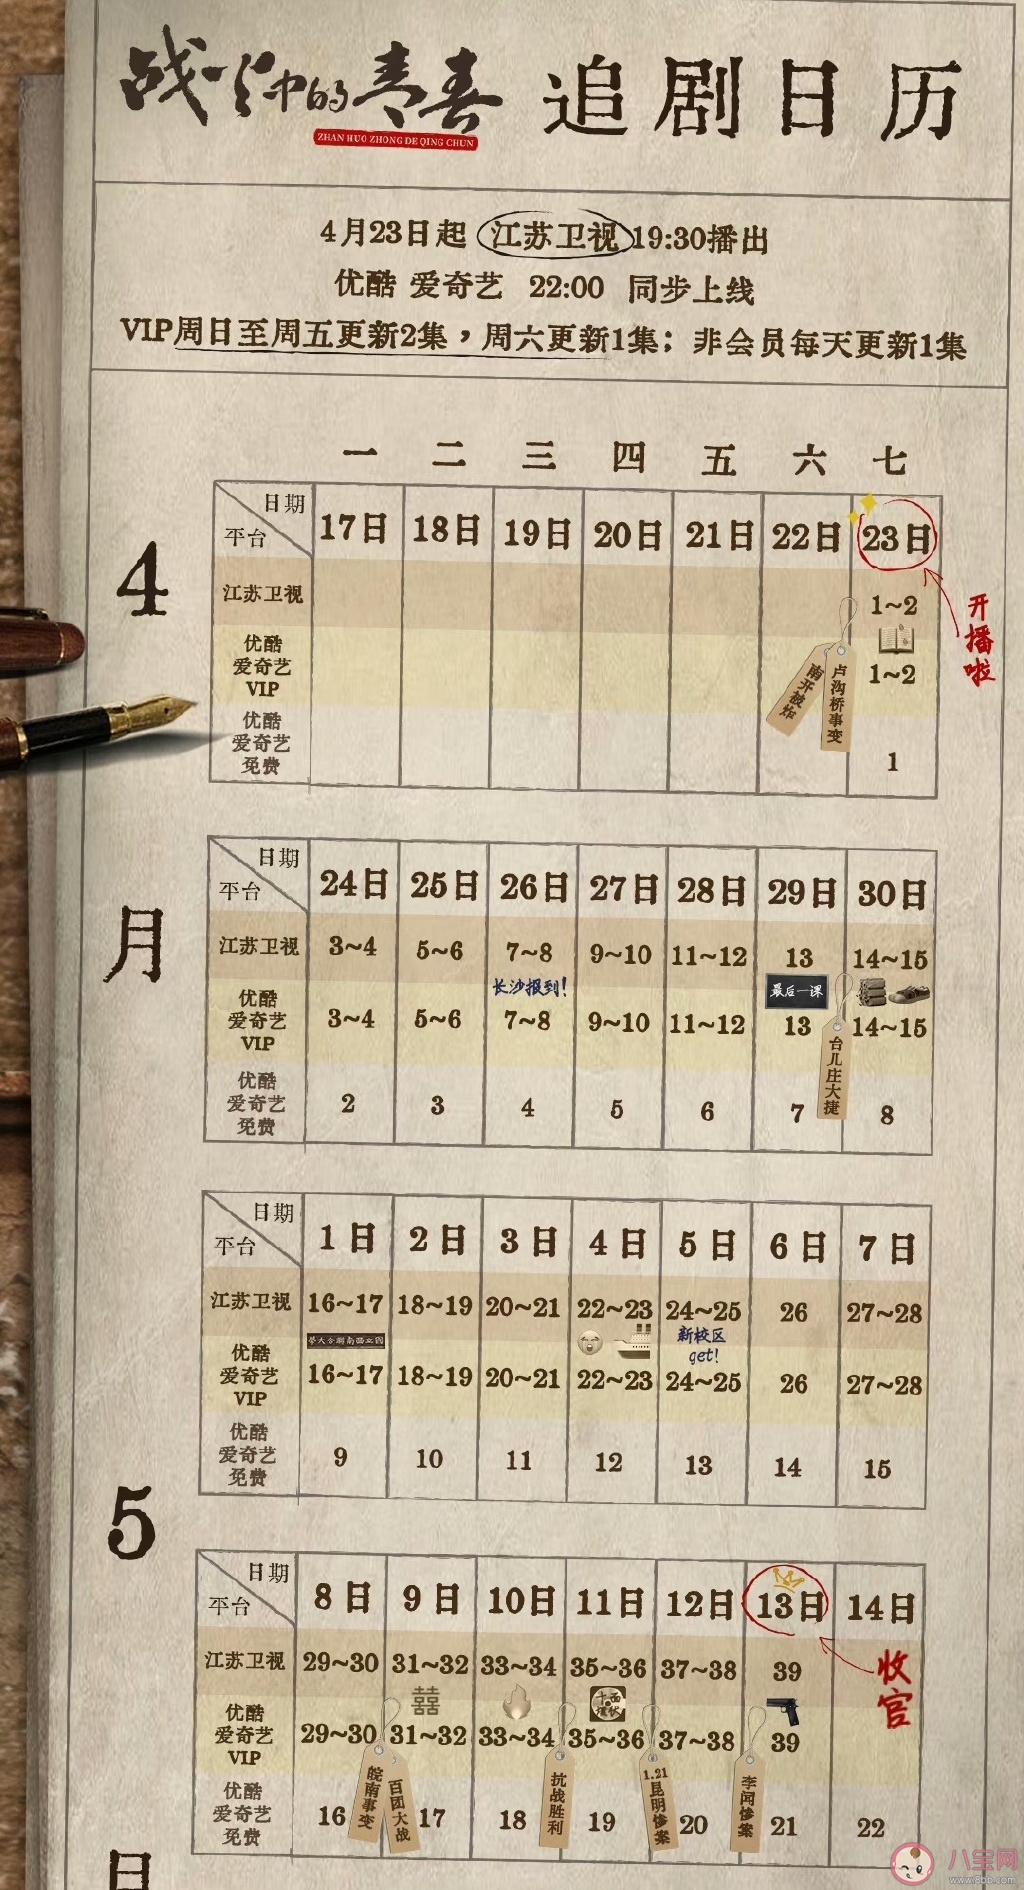 战火中的青春 追剧日历
ZHAN HUO ZHONG DE QING CHUN
4月23日起 江苏卫视 19:30播出
优酷 爱奇艺 22:00 同步上线
VIP周日至周五更新2集，周六更新1集；非会员每天更新1集
一 二 三 四 五 六 七
4
日期 平台 17日 18日 19日 20日 21日 22日 23日
开播啦
江苏卫视 1~2
优酷 爱奇艺 VIP 1~2
南开被炸 卢沟桥事变
优酷 爱奇艺 免费 1
月
日期 平台 24日 25日 26日 27日 28日 29日 30日
江苏卫视 3~4 5~6 7~8 9~10 11~12 13 14~15
长沙报到! 最后一课
优酷 爱奇艺 VIP 3~4 5~6 7~8 9~10 11~12 13 14~15
台儿庄大捷
优酷 爱奇艺 免费 2 3 4 5 6 7 8
日期 平台 1日 2日 3日 4日 5日 6日 7日
江苏卫视 16~17 18~19 20~21 22~23 24~25 26 27~28
學大合聯南西立國 新校区 get!
优酷 爱奇艺 VIP 16~17 18~19 20~21 22~23 24~25 26 27~28
优酷 爱奇艺 免费 9 10 11 12 13 14 15
5
日期 平台 8日 9日 10日 11日 12日 13日 14日
收官
江苏卫视 29~30 31~32 33~34 35~36 37~38 39
囍 十面埋伏
优酷 爱奇艺 VIP 29~30 31~32 33~34 35~36 37~38 39
皖南事变 百团大战 抗战胜利 1.21昆明惨案 李闻惨案
优酷 爱奇艺 免费 16 17 18 19 20 21 22
八宝网
www.8bb.com